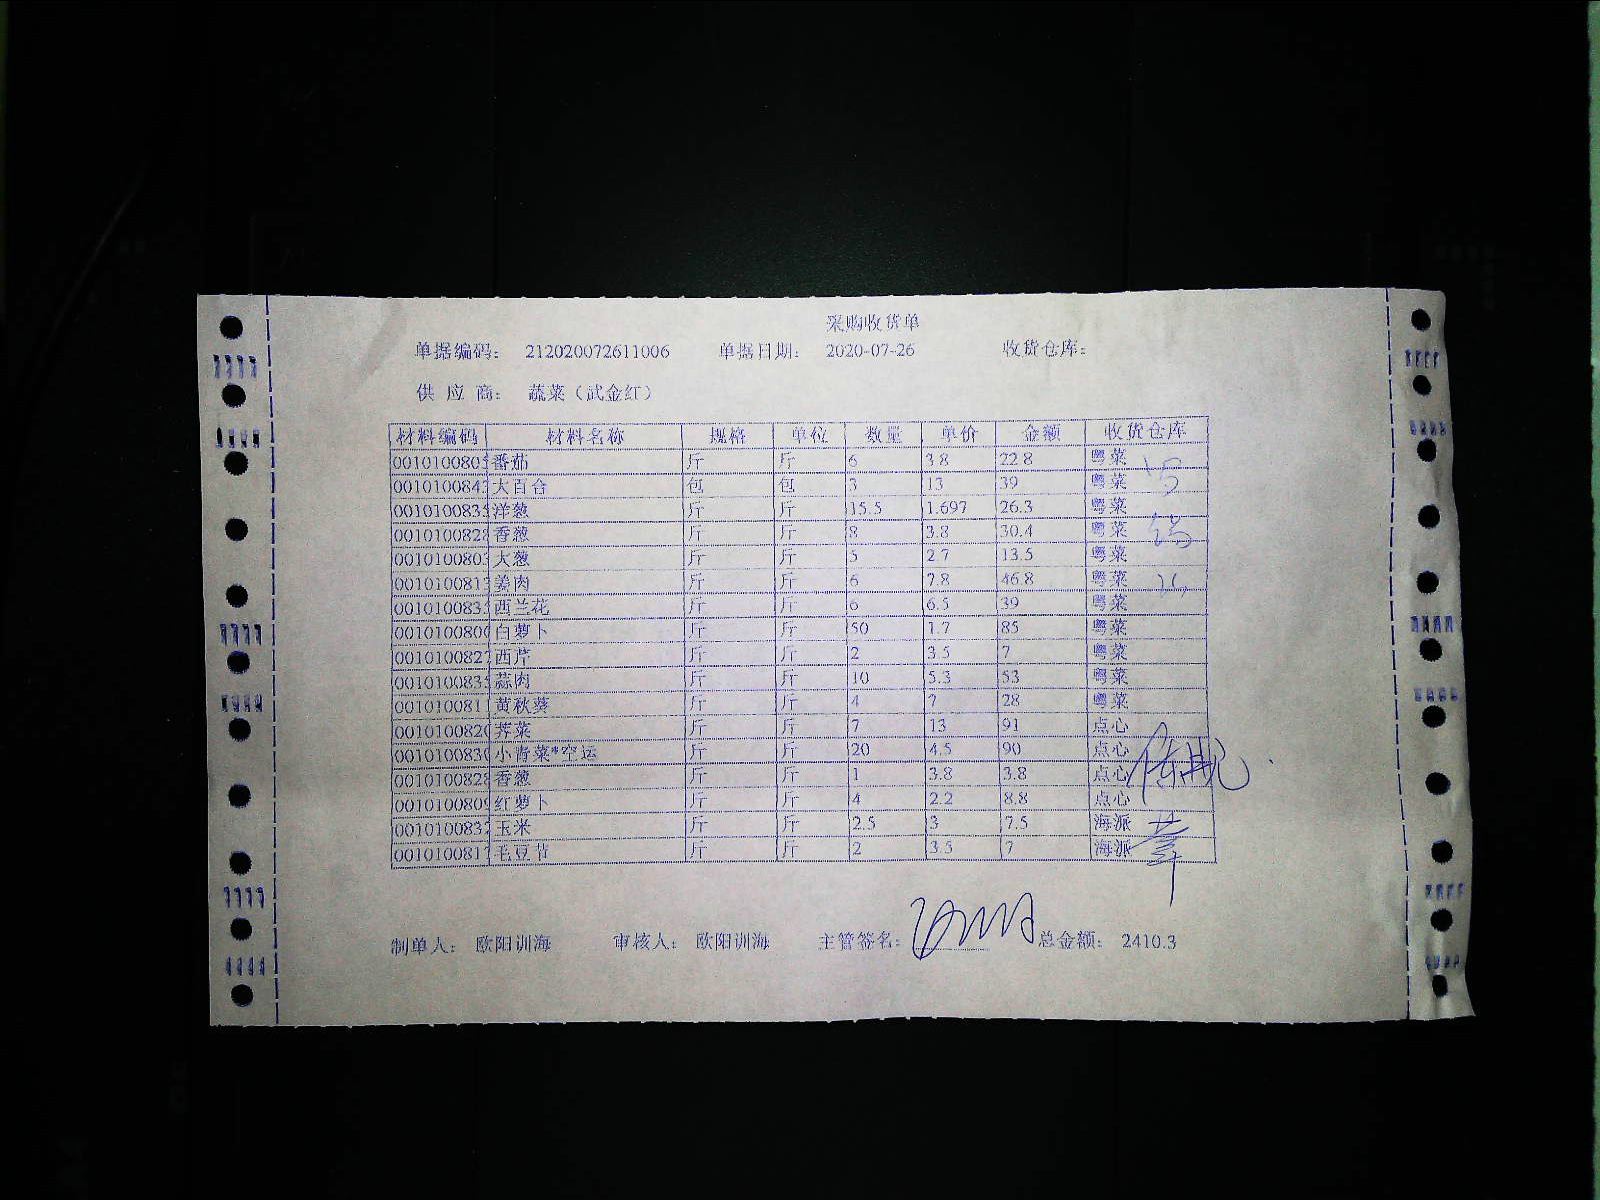 采购收货单
单据编码： 212020072611006 单据日期： 2020-07-26 收货仓库：
供 应 商： 蔬菜（武金红）
材料编码 材料名称 规格 单位 数量 单价 金额 收货仓库
0010100805 番茄 斤 斤 6 3.8 22.8 粤菜
001010084 大百合 包 包 3 13 39 粤菜
001010083 洋葱 斤 斤 15.5 1.697 26.3 粤菜
0010100828 香葱 斤 斤 8 3.8 30.4 粤菜
001010080 大葱 斤 斤 5 2.7 13.5 粤菜
001010081 姜肉 斤 斤 6 7.8 46.8 粤菜
001010083 西兰花 斤 斤 6 6.5 39 粤菜
001010080 白萝卜 斤 斤 50 1.7 85 粤菜
0010100827 西芹 斤 斤 2 3.5 7 粤菜
001010083 蒜肉 斤 斤 10 5.3 53 粤菜
001010081 黄秋葵 斤 斤 4 7 28 粤菜
001010082 荠菜 斤 斤 7 13 91 点心
001010083 小青菜*空运 斤 斤 20 4.5 90 点心
0010100828 香葱 斤 斤 1 3.8 3.8 点心
001010080 红萝卜 斤 斤 4 2.2 8.8 点心
001010083 玉米 斤 斤 2.5 3 7.5 海派
001010081 毛豆节 斤 斤 2 3.5 7 海派
制单人： 欧阳训海 审核人： 欧阳训海 主管签名： 总金额： 2410.3